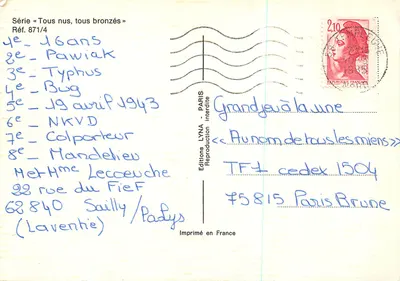 Série «Tous nus, tous bronzés»
Réf. 871/4
1e - 16 ans
2e - Pawiak
3e - Typhus
4e - Bug
5e - 19 avril 1943
6e - NKVD
7e - Colporteur
8e - Mandelieu
Met Mme Lecoeuche
22 rue du Fief
62840 Sailly/
(Laventie)
Editions LYNA - PARIS
Reproduction interdite
Imprimé en France
2,10
Grand jeu à la une
«Au nom de tous les miens»
TF1 cedex 1504
75815 Paris Brune